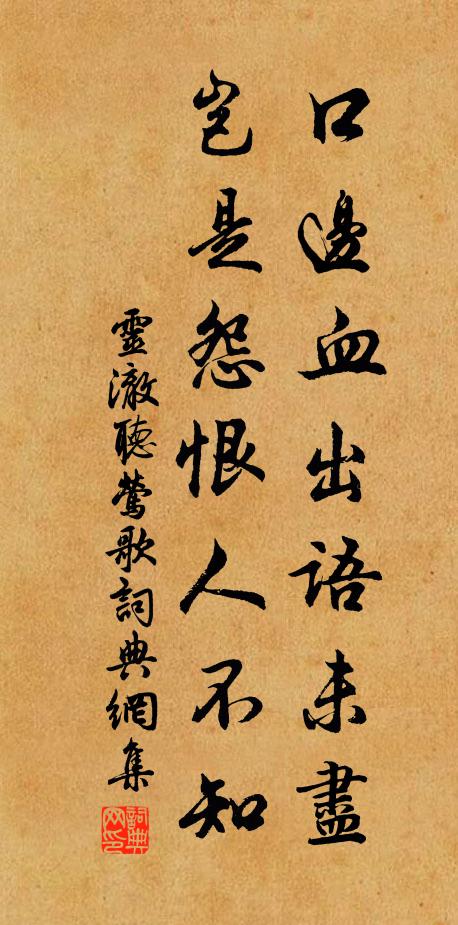 口邊血出語未盡
豈是怨恨人不知
靈澈聽鶯歌詞典網集
詞典网印